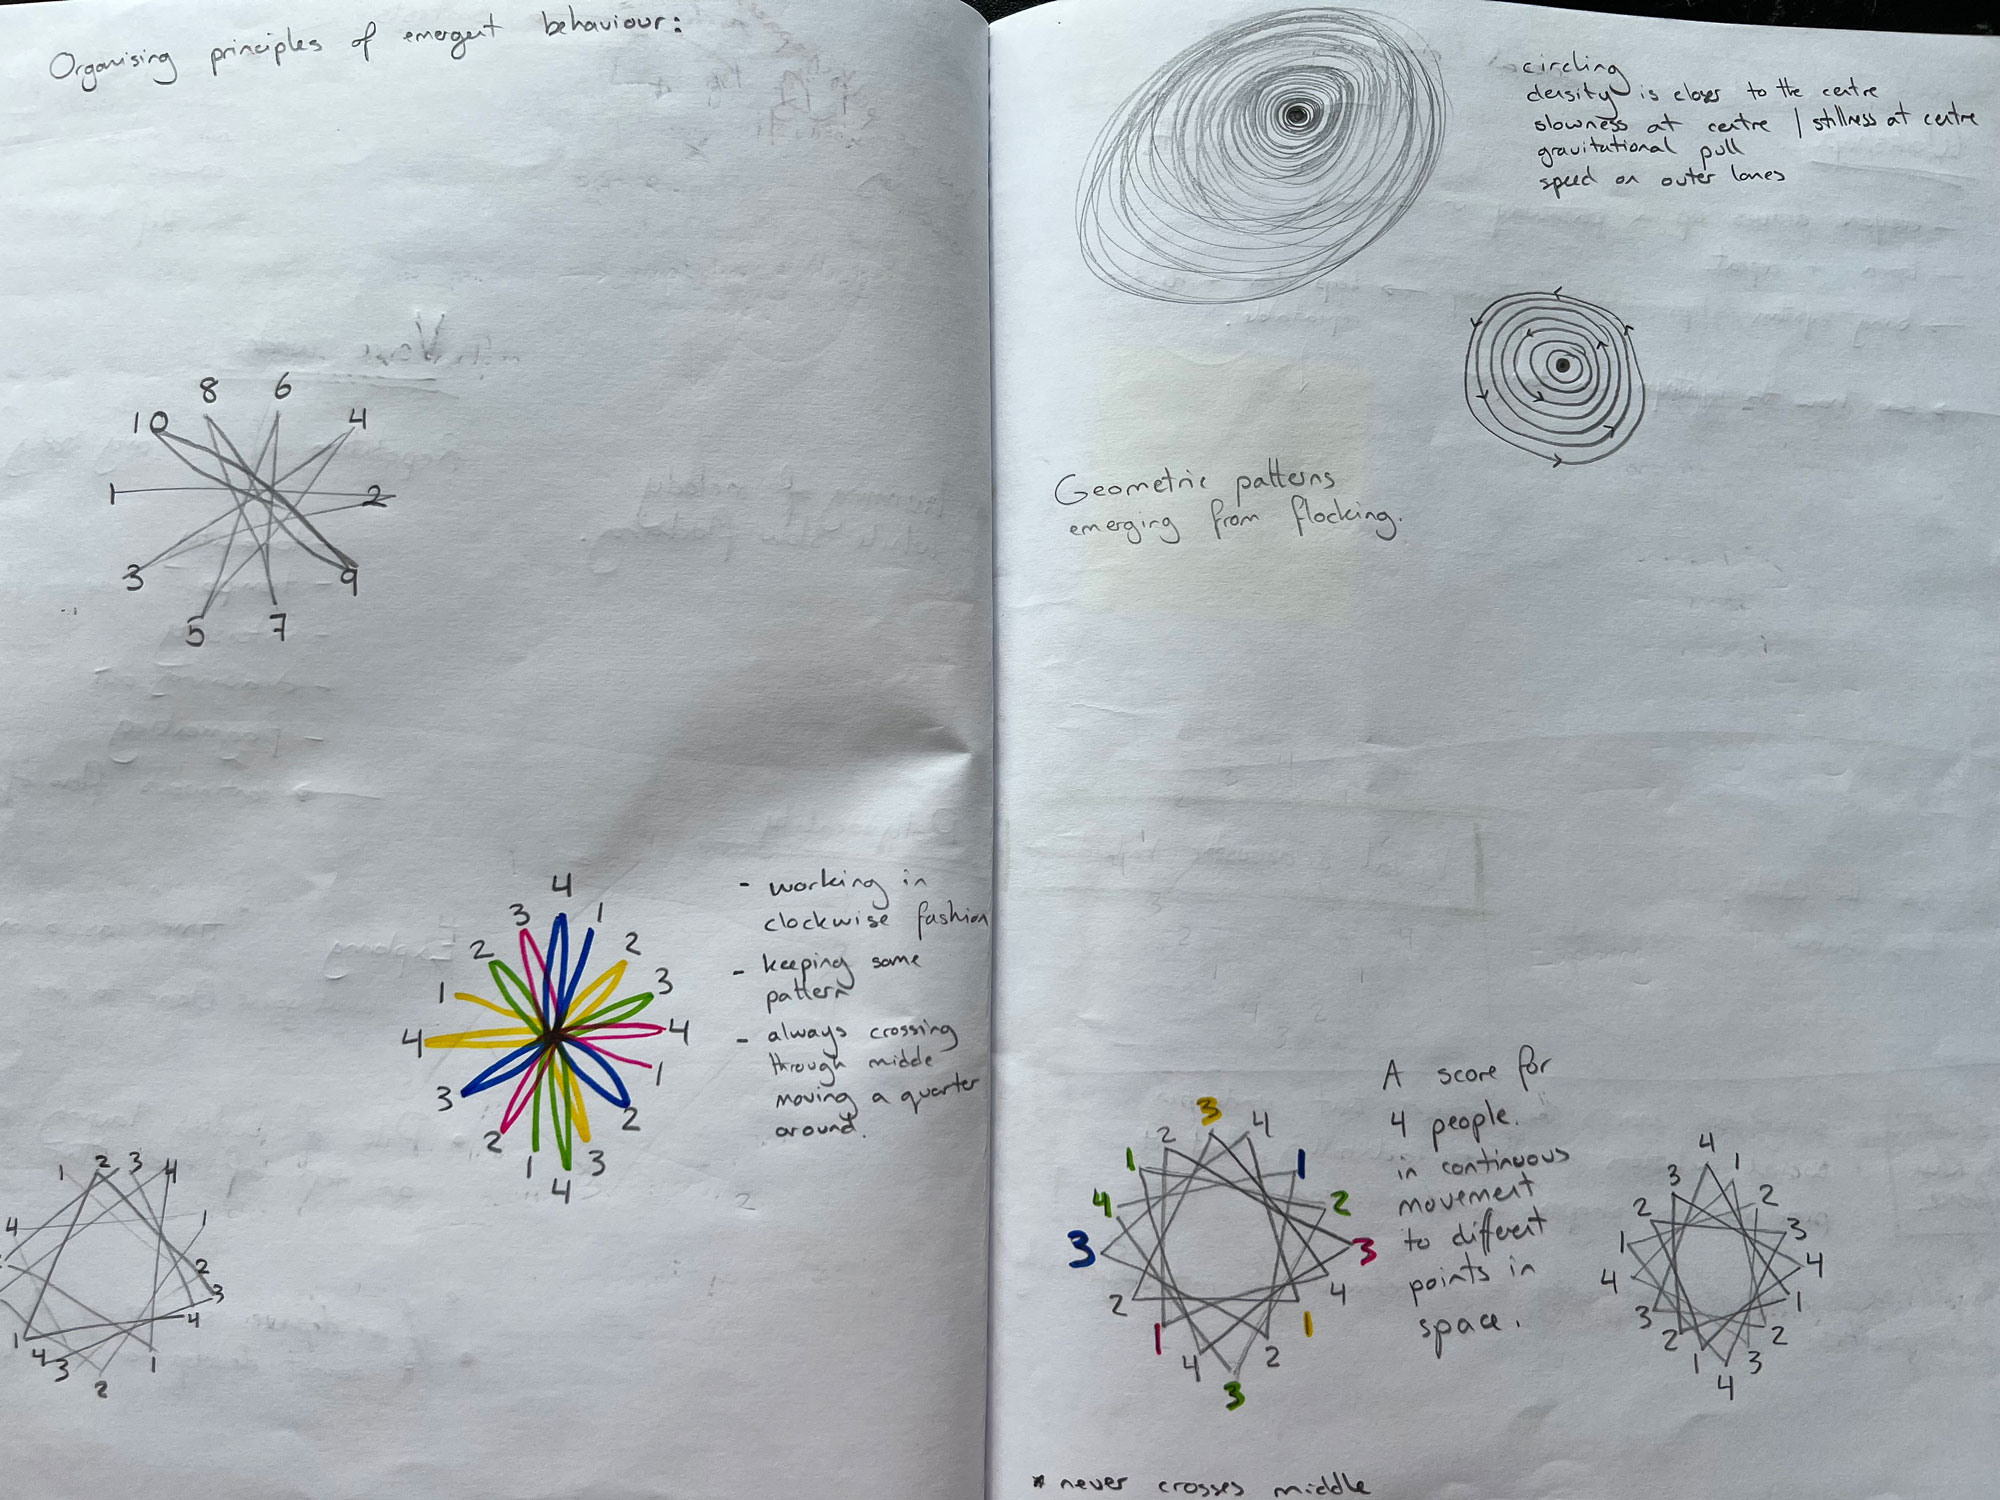 Organising principles of emergent behaviour:
8 6
10 4
1 2
3 9
5 7
4
3 1
2 2
1 3
4 4
3 1
2 2
1 3
4
- working in
clockwise fashion
- keeping same
pattern
- always crossing
through midde
moving a quarter
around.
1 2 3 4
4 1
2
3
1 4
4 3 1
2
circling
density is closer to the centre
slowness at centre / stillness at centre
gravitational pull
speed on outer lanes
Geometric patterns
emerging from flocking.
3
2 4
1 1
4 2
3 3
2 4
1 1
4 2
3
A score for
4 people.
in continuous
movement
to different
points in
space.
4
3 1
2 2
1 3
4 4
3 1
2 2
1 3
4
* never crosses middle